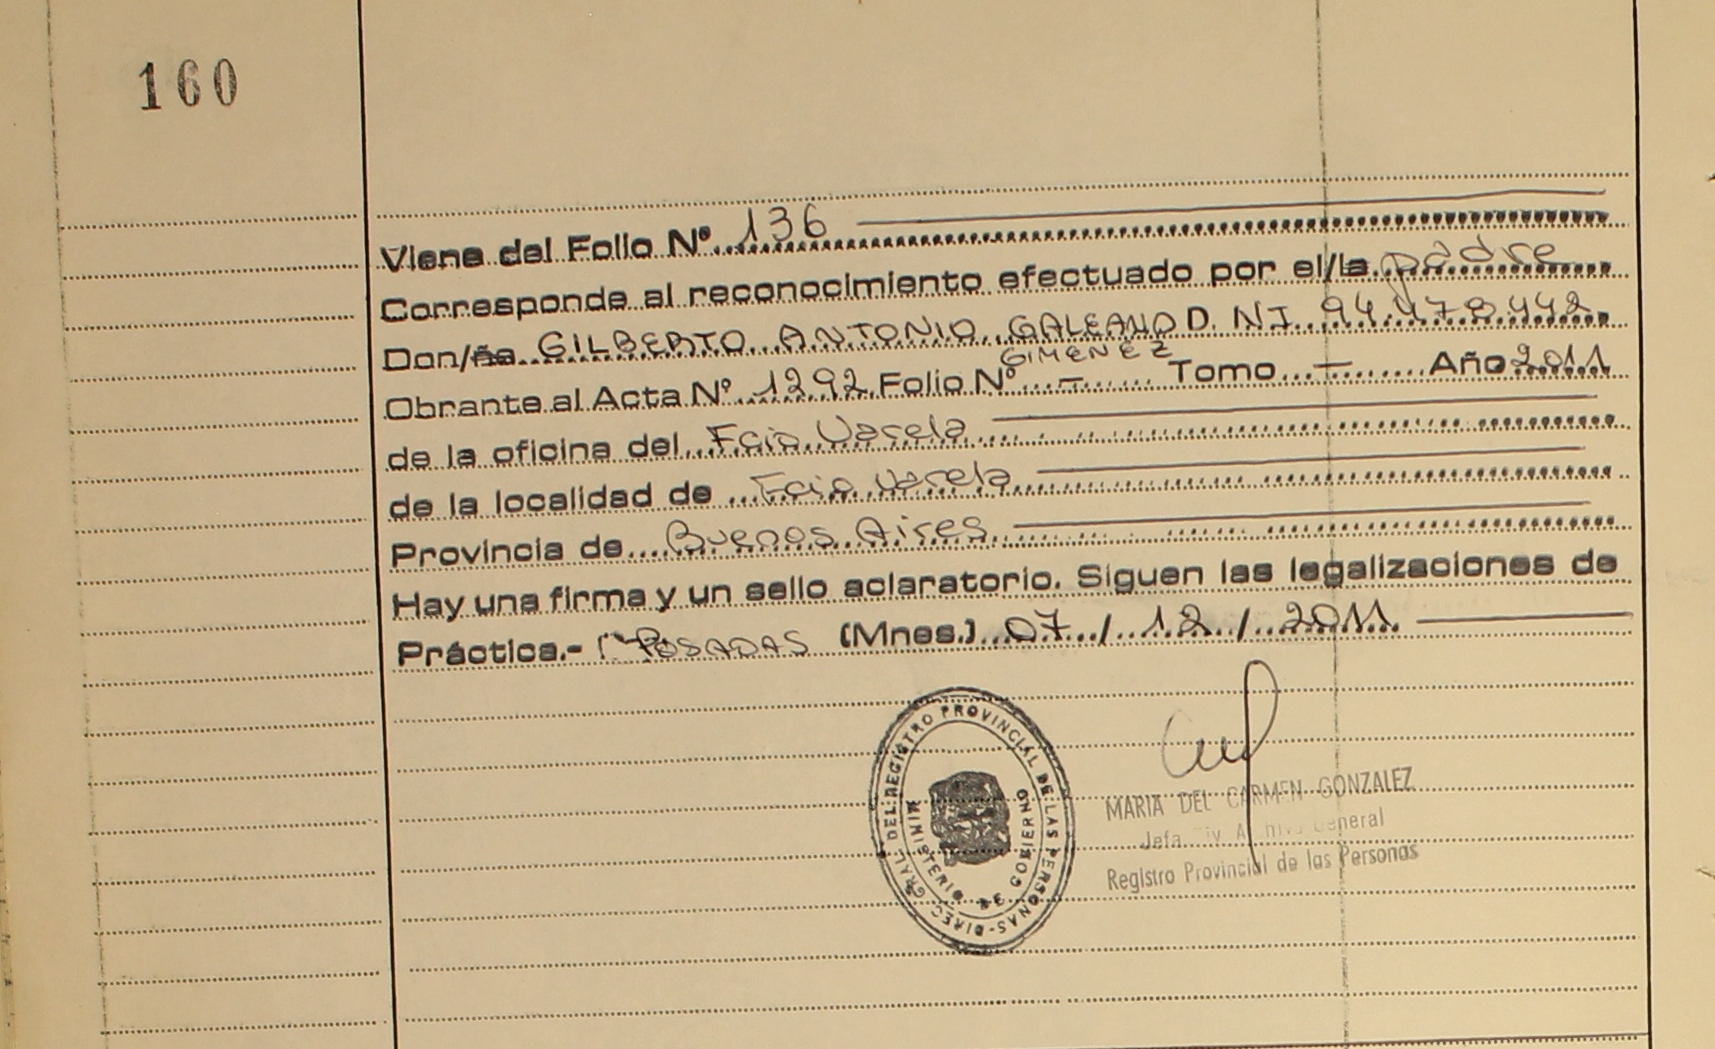 160
Viene del Folio Nº 136
Corresponde al reconocimiento efectuado por el/la padre
Don/ña GILBERTO ANTONIO GALEANO D. NI 94.478.442
GIMENEZ
Obrante al Acta Nº 1292 Folio Nº - Tomo - Año 2011
de la oficina del Fcio Varela
de la localidad de Fcio Varela
Provincia de Buenos Aires
Hay una firma y un sello aclaratorio. Siguen las legalizaciones de
Práctica.- POSADAS (Mnes.) 07 / 12 / 2011
DIREC. GRAL. DEL REGISTRO PROVINCIAL DE LAS PERSONAS
MINISTERIO DE GOBIERNO
MARIA DEL CARMEN GONZALEZ
Jefa General
Registro Provincial de las Personas